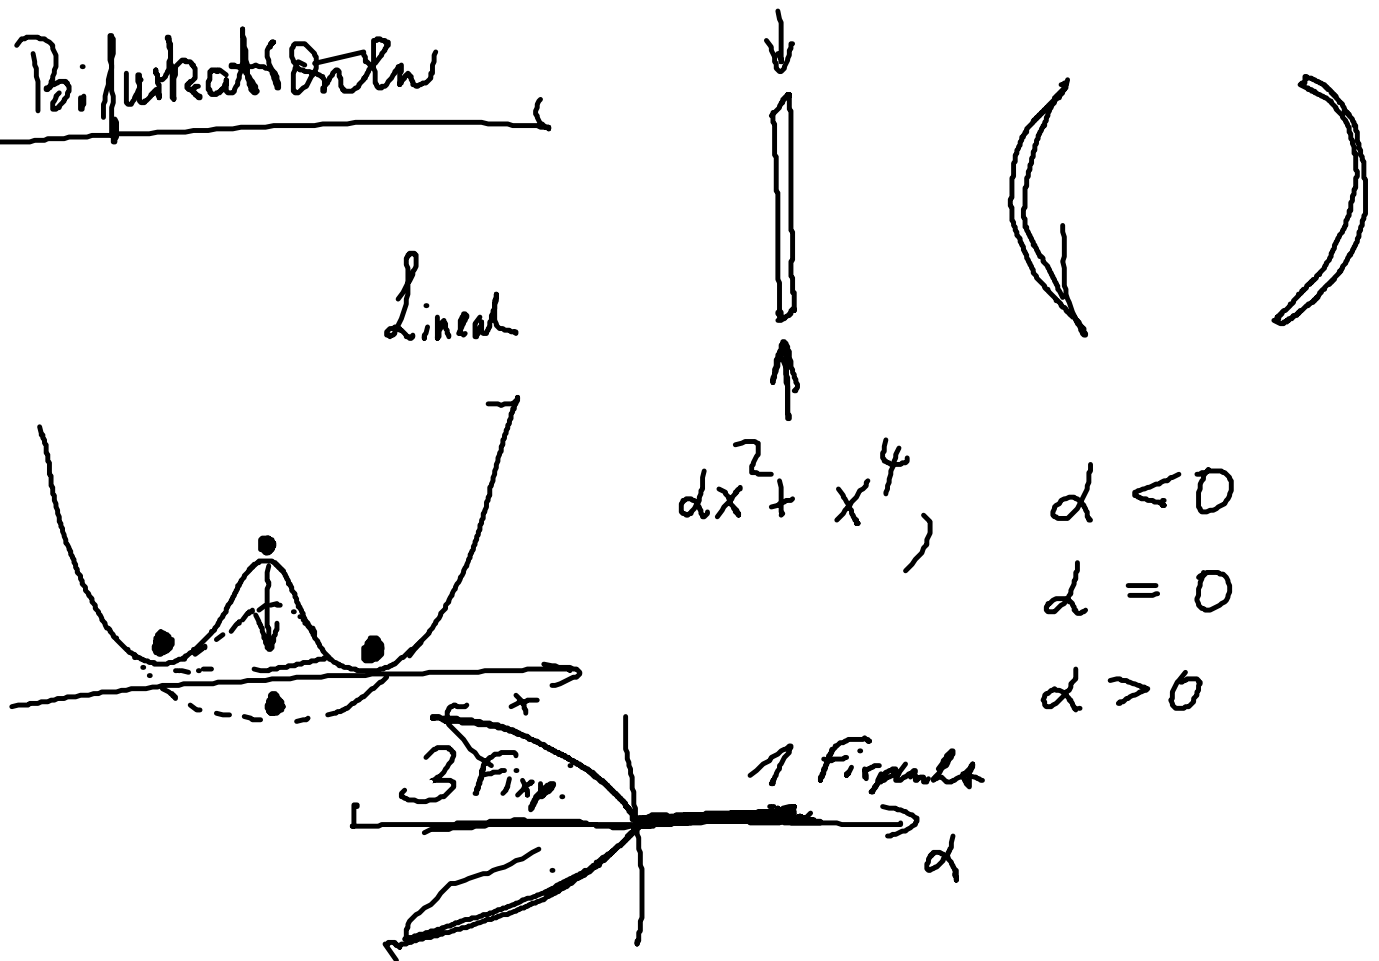 Bifurkationen
Lineal
αx² + x⁴,
α < 0
α = 0
α > 0
x
3 Fixp.
1 Fixpunkt
α